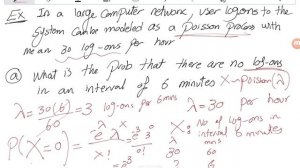 EX In a large computer network, user logons to the
system can be modeled as a Poisson Process with
mean 30 log-ons per hour
(a) What is the Prob that there are no log-ons
in an interval of 6 minutes X~Poisson(λ)
λ = 30(6)/60 = 3 log-ons per 6mns λ=30 per hour
P(X=0) = e^-λ λ^x / x! = e^-3 3^0 / 0! X: No of log-ons in
interval 6 minutes
30 60
? 6